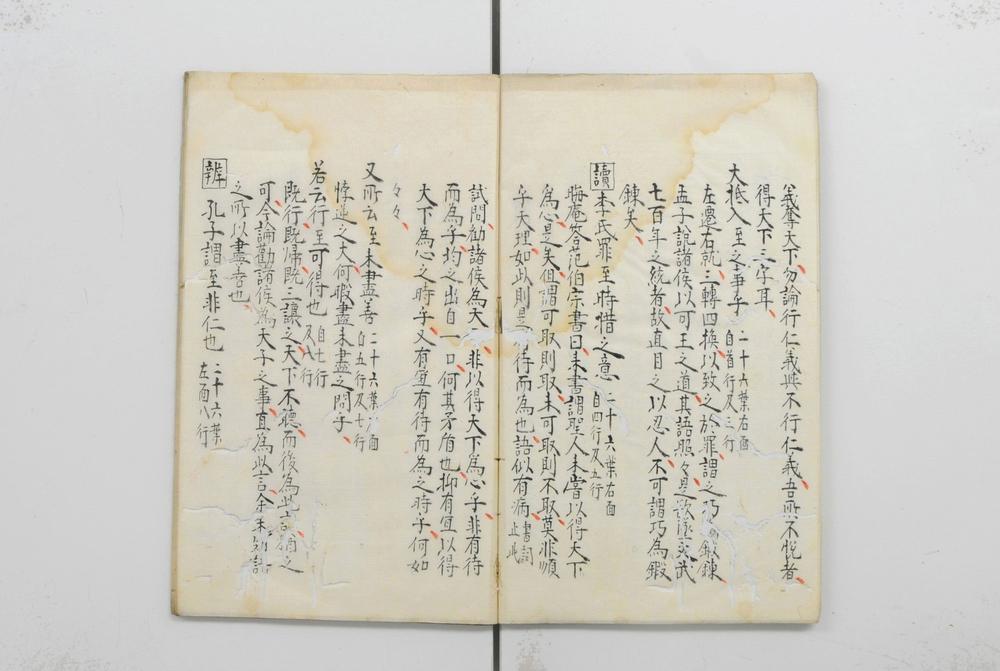 義奪天下勿論行仁義與不行仁義吾所不悅者
得天下三字耳
大抵入至之事乎 二十六葉右面 自首行及三行
左遷右就三轉四換以致之於罪謂之巧為鍛鍊
孟子說諸侯以可王之道其語照々是欲墜文武
七百年之統者故直目之以忍人不可謂巧為鍛
鍊矣
讀 李氏罪至時惜之意 二十六葉右面 自四行及五行
晦庵答范伯宗書曰來書謂聖人未嘗以得天下
為心是矣但謂可取則取未可取則不取莫非順
乎天理如此則是有待而為也語似有病 書詞止此
試問勸諸侯為天 非以得天下為心乎非有待
而為乎均之出自一口何其矛盾也抑有宜以得
天下為心之時乎又有宜有待而為之時乎何如
々々
又所云至未盡善 二十六葉右面 自五行及七行
悖逆之大何暇盡未盡之問乎
若云行至可得也 自七行及八行
既行既歸既三讓之天下不聽而後為此 猶之
可今論勸諸侯為天子之事直為此言余未知語
之所以盡善也
辨 孔子謂至非仁也 二十六葉左面八行